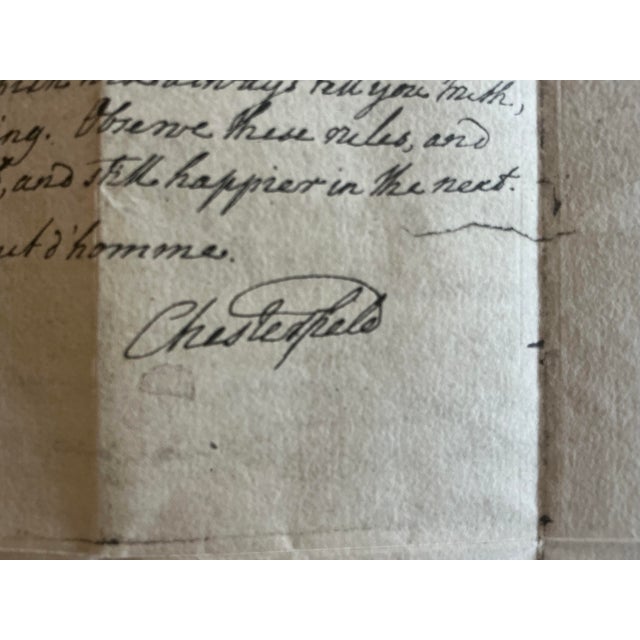 always tell you truth,
ing. Observe these rules, and
, and still happier in the next.
d'homme.
Chesterfield